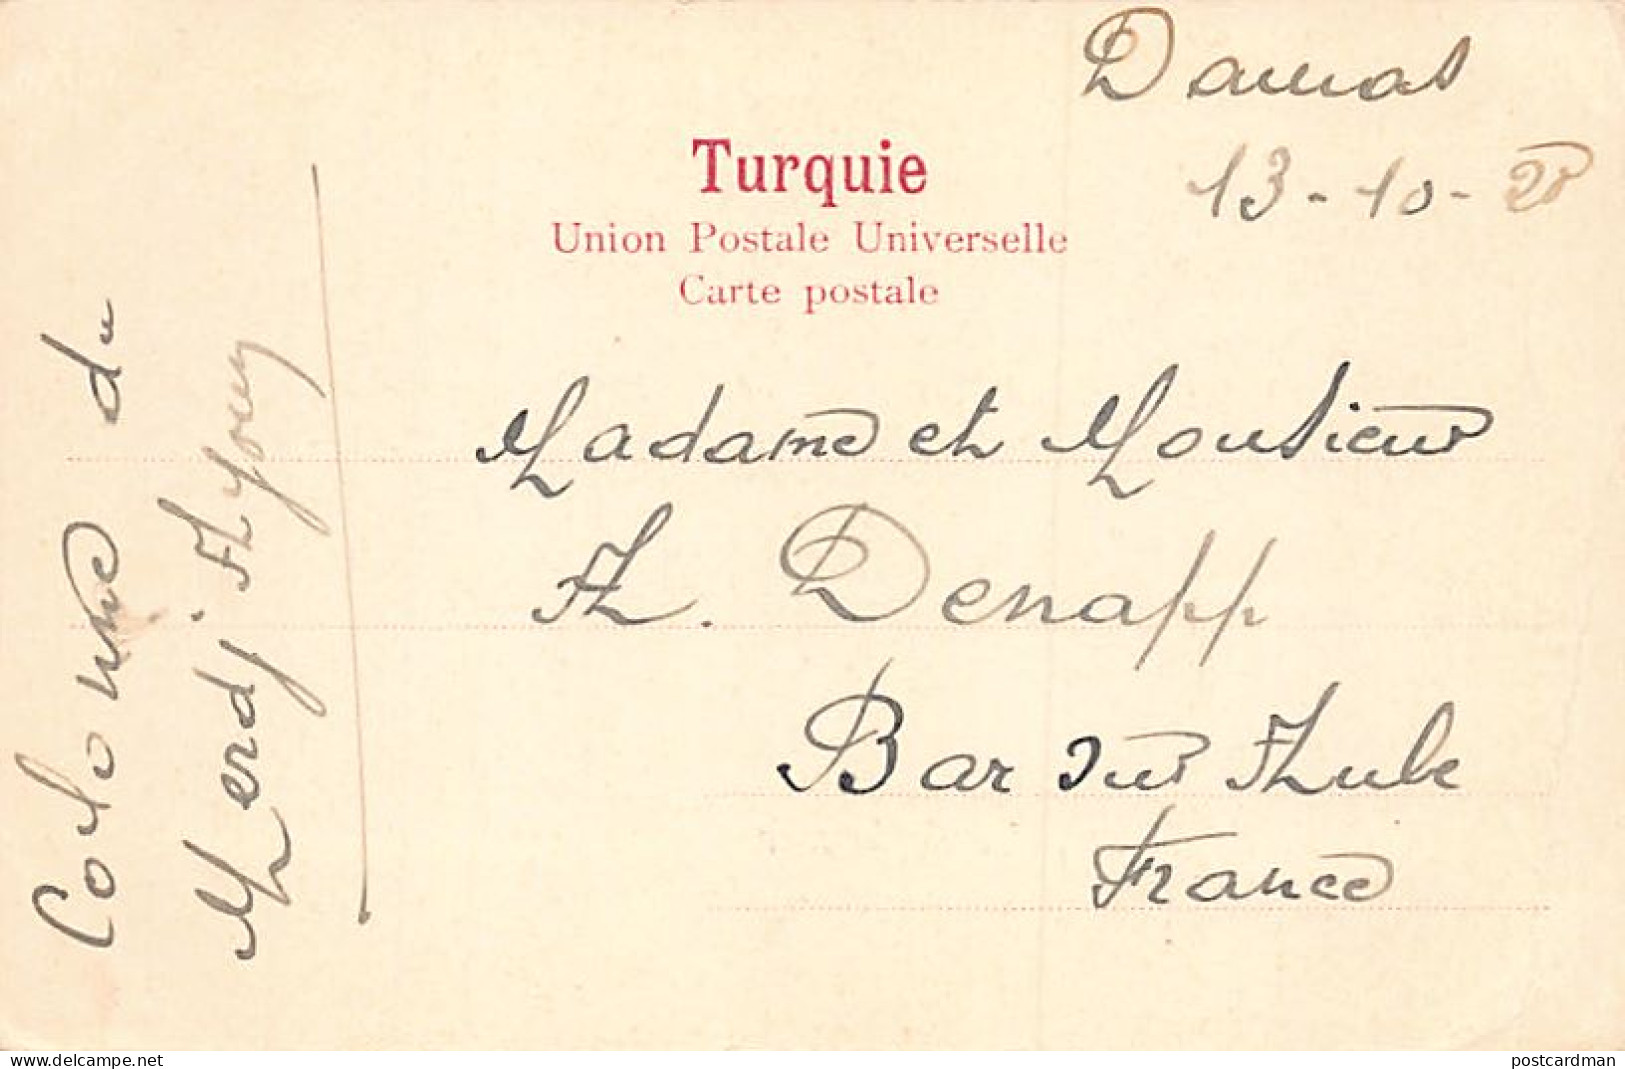 Damas
13-10-
Turquie
Union Postale Universelle
Carte postale
Madame et Monsieur
A. Denapp
Bar sur Aube
France
Colonne du
Merdj.Ayoun
www.delcampe.net
postcardman